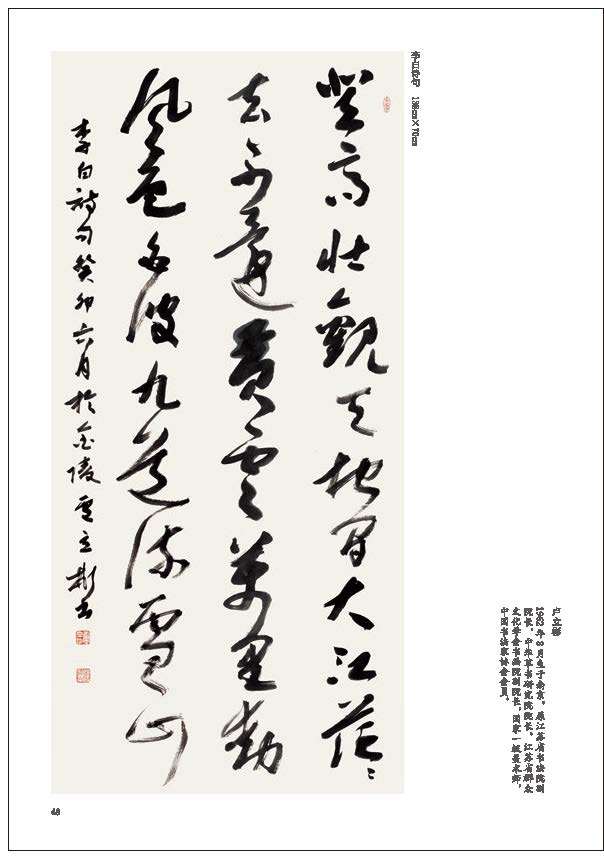 李白诗句 138cm×70cm
登高壮觀天地間大江茫〻
去不還黄雲萬里動
風色白波九道流雪山
李白詩句癸卯六月於金陵盧立彬书
卢立彬
1962年3月生于南京。原江苏省书法院副
院长,中华草书研究院院长,江苏省群众
文化学会书画院副院长,国家一级美术师,
中国书法家协会会员。
48